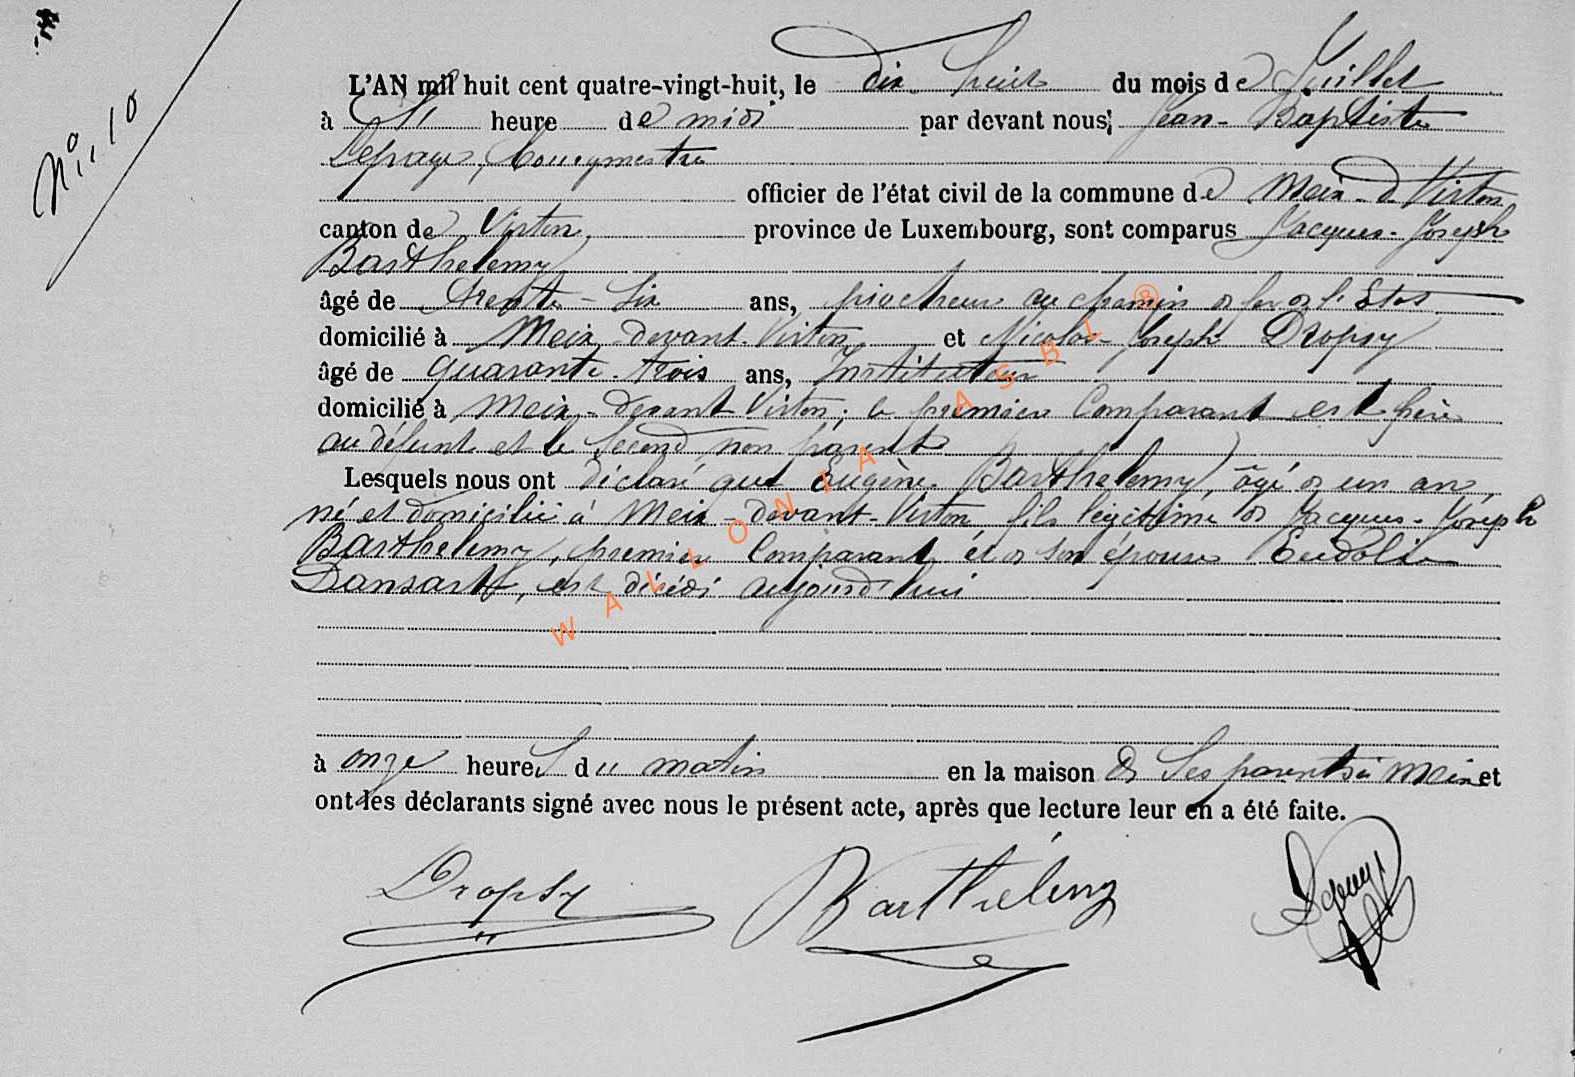 N° 10
L'AN mil huit cent quatre-vingt-huit, le dix huit du mois de Juillet
à heure de midi par devant nous, Jean-Baptiste
Lepage, bourgmestre
officier de l'état civil de la commune de Meix-d-Virton
canton de Virton, province de Luxembourg, sont comparus Jacques-Joseph
Barthelemy
âgé de trente-six ans, piocheur au chemin de fer de l'Etat
domicilié à Meix-devant-Virton et Nicolas Joseph Dropsy
âgé de quarante-trois ans, Instituteur
domicilié à Meix-devant Virton; le premier comparant est père
au défunt et le second non parent
Lesquels nous ont déclaré que Eugène Barthelemy, âgé de un an,
né et domicilié à Meix-devant-Virton, fils légitime de Jacques-Joseph
Barthelemy, premier comparant et de son épouse Eudolie
Dansart, est décédé aujourd'hui
à onze heures du matin en la maison de ses parents à Meix et
ont les déclarants signé avec nous le présent acte, après que lecture leur en a été faite.
Dropsy Barthélemy
WALLONIA ASBL ®